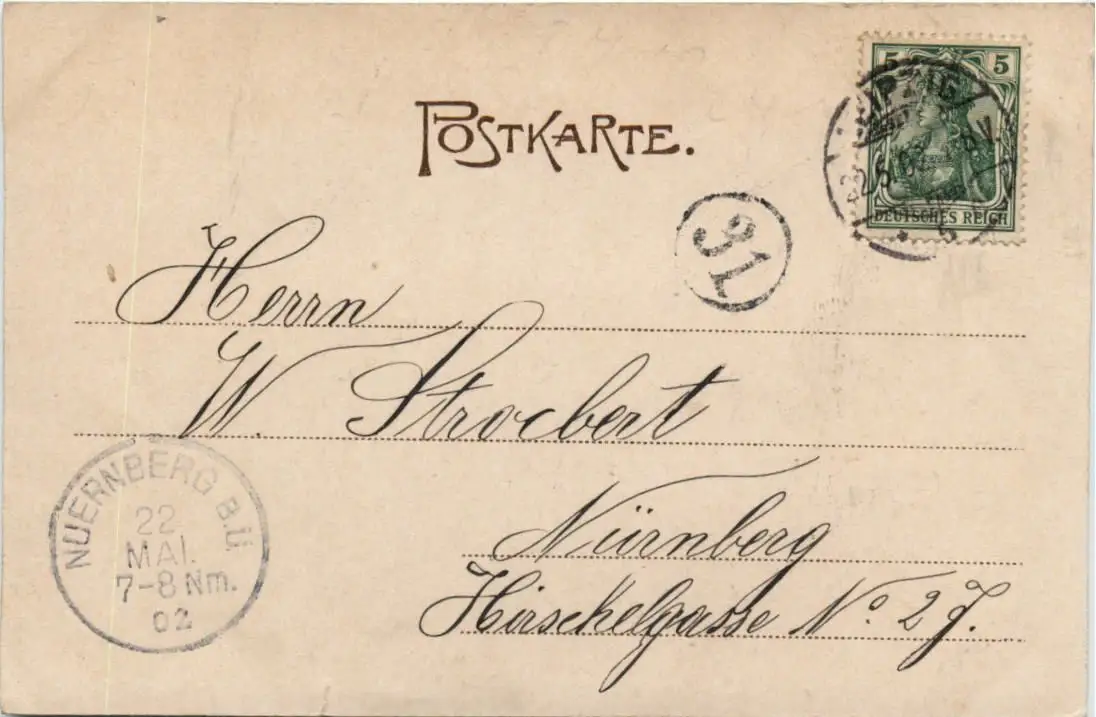 5 5
DEUTSCHES REICH
POSTKARTE.
31
Herrn
W. Strobert
Nürnberg
Hirschelgasse No 27.
NUERNBERG B.Ü.
22
MAI.
7-8 Nm.
02